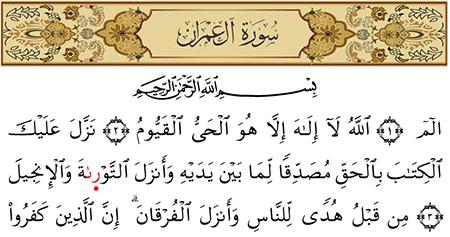 سُورَةُ آلِ عِمْرَانَ
بِسْمِ اللَّهِ الرَّحْمَٰنِ الرَّحِيمِ
الٓمٓ ﴿١﴾ اللَّهُ لَآ إِلَٰهَ إِلَّا هُوَ الْحَىُّ الْقَيُّومُ ﴿٢﴾ نَزَّلَ عَلَيْكَ
الْكِتَٰبَ بِالْحَقِّ مُصَدِّقًا لِّمَا بَيْنَ يَدَيْهِ وَأَنزَلَ التَّوْرَىٰةَ وَالْإِنجِيلَ
﴿٣﴾ مِن قَبْلُ هُدًى لِّلنَّاسِ وَأَنزَلَ الْفُرْقَانَ ۗ إِنَّ الَّذِينَ كَفَرُوا۟